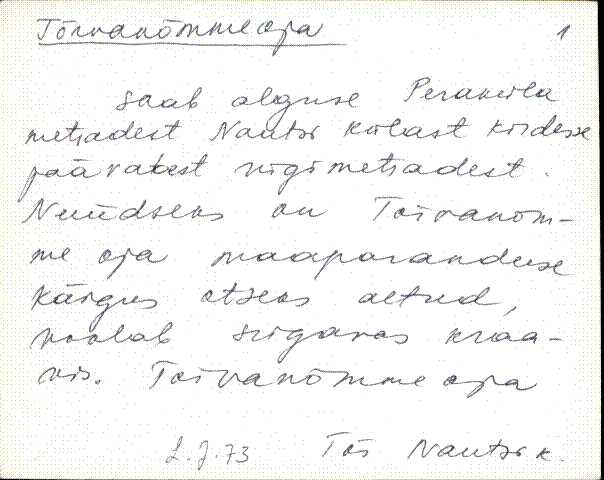 Tõrvanõmme oja 1
saab alguse Peraküla
metsadest Nautsi külast kirdesse
jäävatest riigimetsadest.
Nüüdseks on Tõrvanõm-
me oja maaparanduse
käigus otseks aetud,
voolab sügavas kraa-
vis. Tõrvanõmme oja
L.J.73 Tõs Nautsi k.